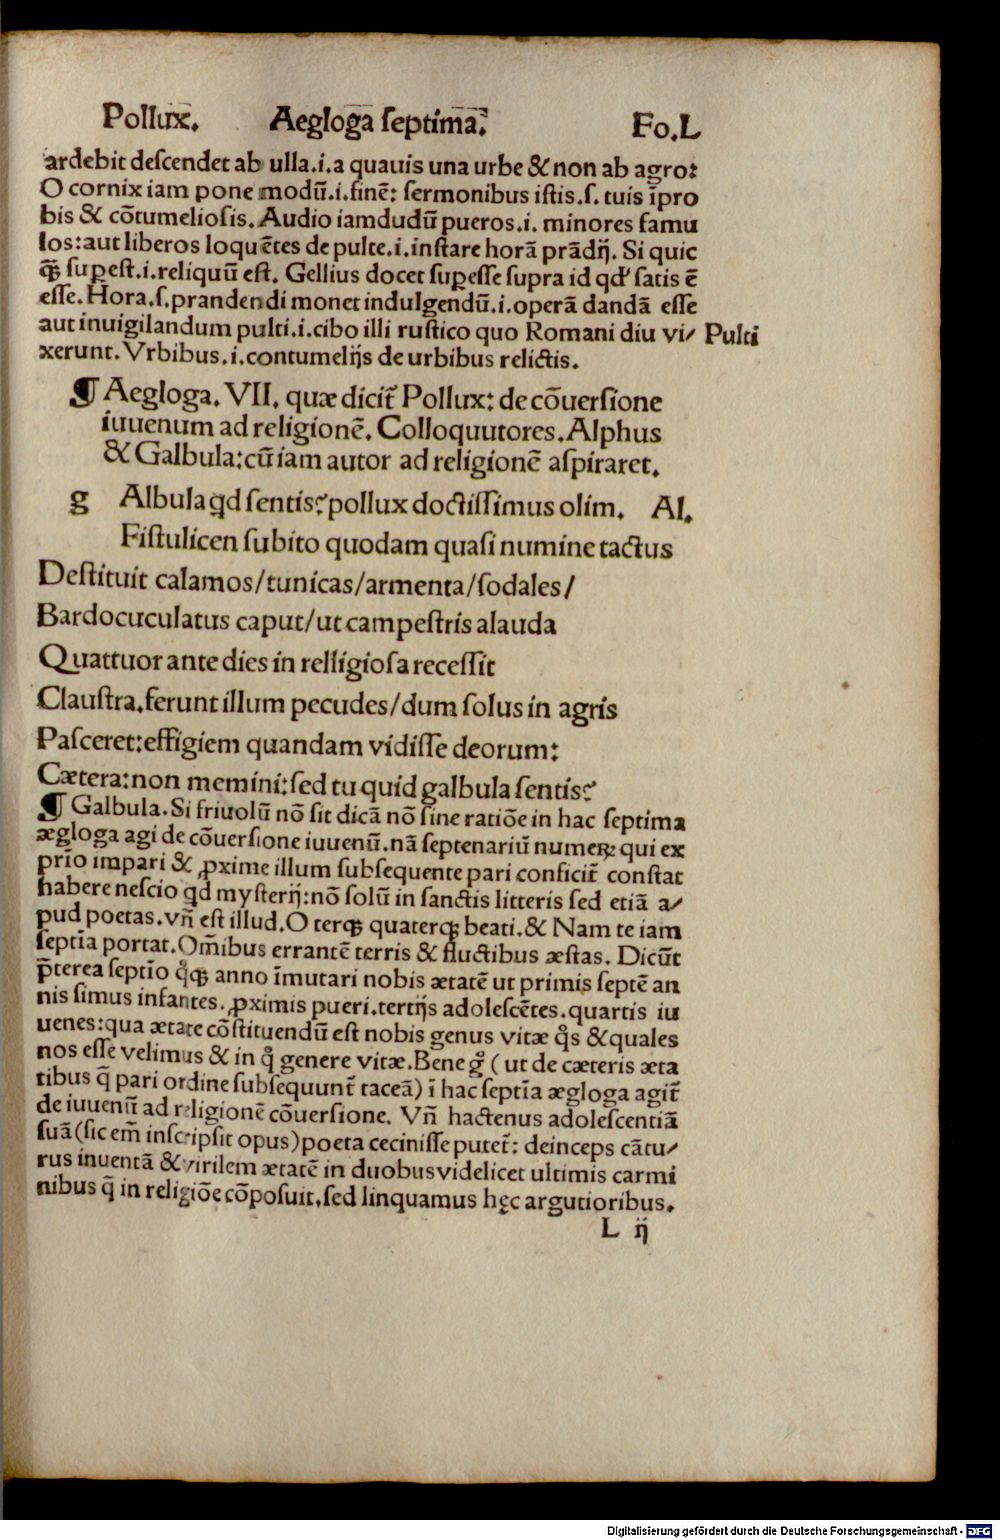 Pollux. Aegloga septima. Fo.L
ardebit descendet ab ulla.i.a quauis una urbe & non ab agro:
O cornix iam pone modũ.i.finẽ: sermonibus istis.s. tuis ĩpro
bis & cõtumeliosis. Audio iamdudũ pueros.i. minores famu
los:aut liberos loquẽtes de pulte.i.instare horã prãdij. Si quic
ꝙ̃ suꝑest.i.reliquũ est. Gellius docet suꝑesse supra id qđ satis ẽ
esse. Hora.s.prandendi monet indulgendũ.i.operã dandã esse
aut inuigilandum pulti.i.cibo illi rustico quo Romani diu vi/ Pulti
xerunt. Vrbibus.i.contumelijs de urbibus relictis.
¶ Aegloga. VII. quæ dicit̃ Pollux: de cõuersione
iuuenum ad religionẽ. Colloquutores. Alphus
& Galbula: cũ iam autor ad religionẽ aspiraret.
g Albula qd sentis? pollux doctissimus olim. Al.
Fistulicen subito quodam quasi numine tactus
Destituit calamos/tunicas/armenta/sodales/
Bardocuculatus caput/ut campestris alauda
Quattuor ante dies in relligiosa recessit
Claustra.ferunt illum pecudes/dum solus in agris
Pasceret:effigiem quandam vidisse deorum:
Cætera:non memini:sed tu quid galbula sentis?
¶ Galbula. Si friuolũ nõ sit dicã nõ sine ratiõe in hac septima
ægloga agi de cõuersione iuuenũ. nã septenariũ numeꝝ qui ex
prĩo impari & ꝓxime illum subsequente pari conficit̃ constat
habere nescio qd mysterij: nõ solũ in sanctis litteris sed etiã a/
pud poetas. vñ est illud. O terqꝫ quaterqꝫ beati. & Nam te iam
septĩa portat. Om̃ibus errantẽ terris & fluctibus æstas. Dicũt
p̃terea septĩo qͦqꝫ anno ĩmutari nobis ætatẽ ut primis septẽ an
nis simus infantes. ꝓximis pueri. tertijs adolescẽtes. quartis iu
uenes: qua ætate cõstituendũ est nobis genus vitæ qͦs & quales
nos esse velimus & in qͦ genere vitæ. Bene gͦ ( ut de cæteris æta
tibus q̃ pari ordine subsequunt̃ taceã) ĩ hac septĩa ægloga agit̃
de iuuenũ ad religionẽ cõuersione. Vñ hactenus adolescentiã
suã (sic em̃ inscripsit opus) poeta cecinisse putet̃: deinceps cãtu/
rus inuentã & virilem ætatẽ in duobus videlicet ultimis carmi
nibus q̃ in religiõe cõposuit. sed linquamus hęc argutioribus.
L ij
Digitalisierung gefördert durch die Deutsche Forschungsgemeinschaft - DFG